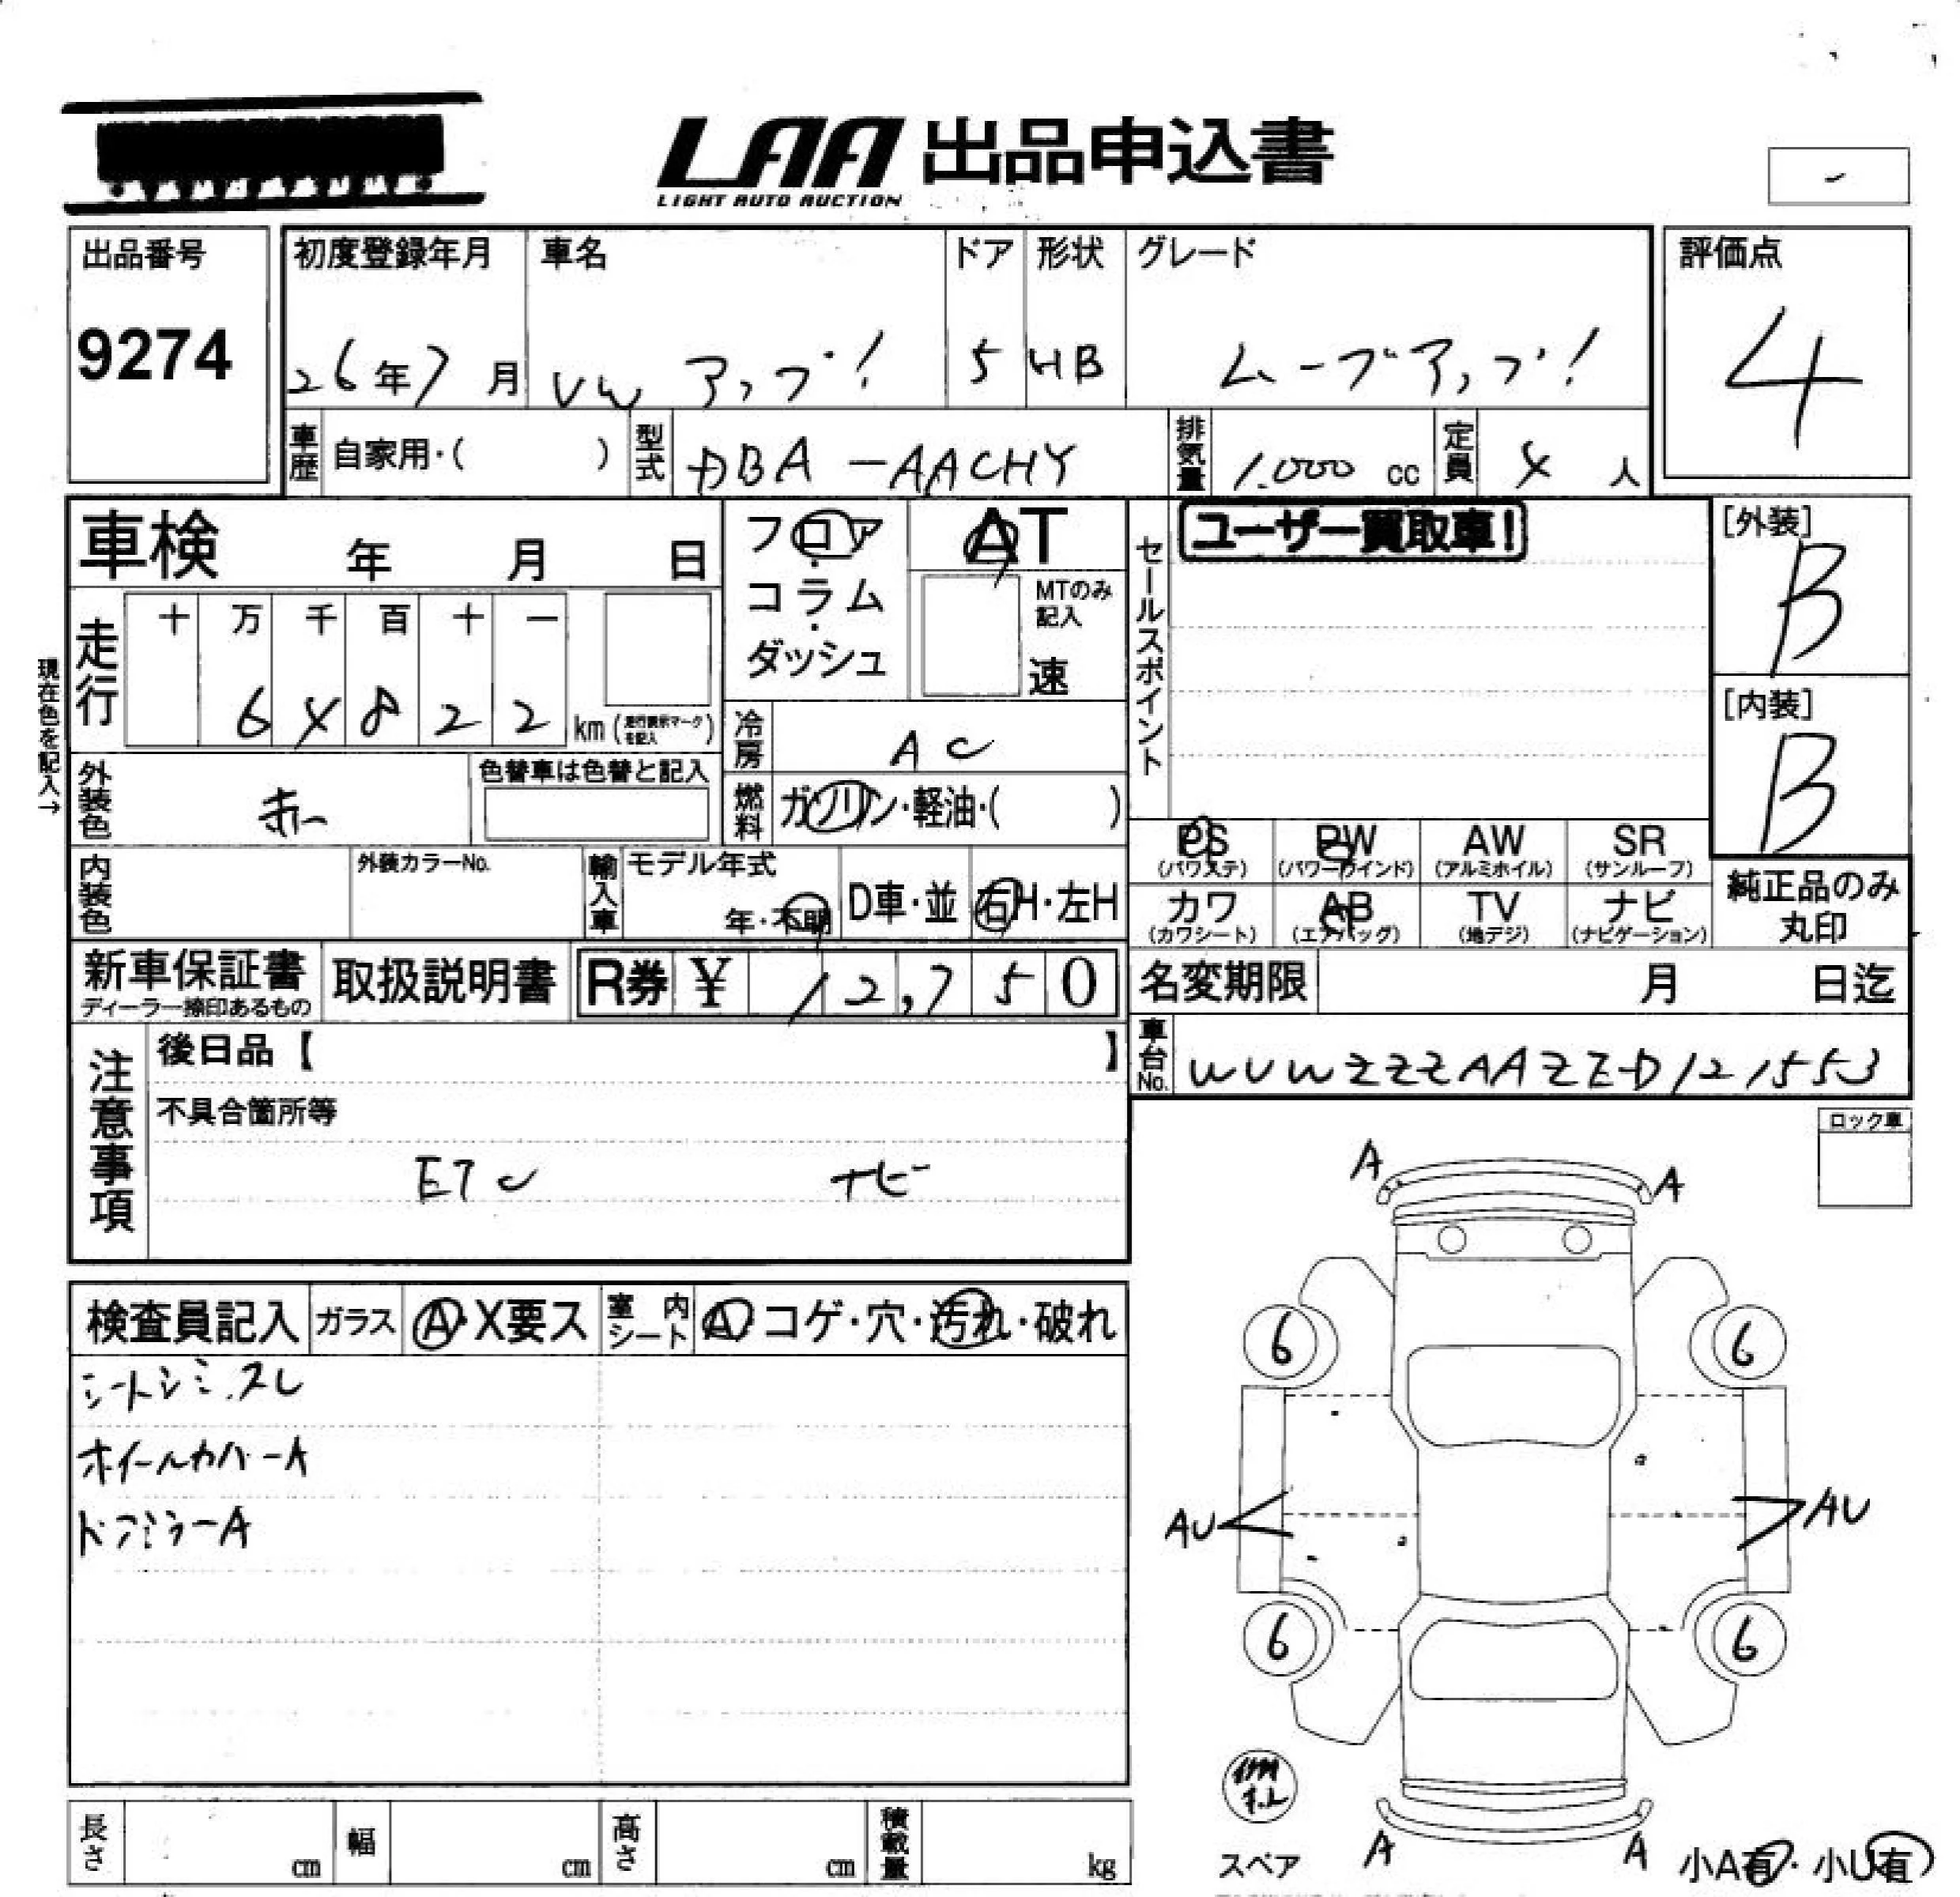 LAA 出品申込書
LIGHT AUTO AUCTION
-
出品番号
9274
初度登録年月
26年7月
車名
VW アップ!
ドア
5
形状
HB
グレード
ムーブアップ!
評価点
4
車歴 自家用・( )
型式 DBA-AACHY
排気量 1.000 cc
定員 4 人
車検 年 月 日
フロア・コラム・ダッシュ
AT
MTのみ記入
速
セールスポイント
ユーザー買取車!
[外装]
B
[内装]
B
現在色を記入→
走行
十 万 千 百 十 一
6 4 8 2 2 km (走行表示マークを記入)
冷房 AC
外装色 赤
色替車は色替と記入
燃料 ガソリン・軽油・( )
内装色
外装カラーNo.
輸入車
モデル年式
年・不明
D車・並
右H・左H
PS (パワステ)
PW (パワーウインド)
AW (アルミホイル)
SR (サンルーフ)
カワ (カワシート)
AB (エアバッグ)
TV (地デジ)
ナビ (ナビゲーション)
純正品のみ丸印
新車保証書
ディーラー捺印あるもの
取扱説明書
R券 ¥ 12,750
名変期限 月 日迄
車台No. WVWZZZAAZED121553
注意事項
後日品【 】
不具合箇所等
ETC ナビ
ロック車
検査員記入
ガラス A・X要ス
室内シート A・コゲ・穴・汚れ・破れ
シートシミ.スレ
ホイールカバーA
ドアミラーA
A A
6 6
AU AU
6 6
スペア
A A
小A有・小U有
長さ cm
幅 cm
高さ cm
積載量 kg